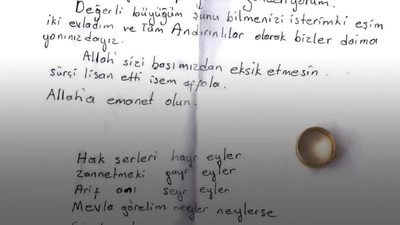 Değerli büyüğüm şunu bilmenizi isterimki eşim
iki evladım ve tüm Andırınlılar olarak bizler daima
yanınızdayız.
Allah sizi başımızdan eksik etmesin.
sürçi lisan etti isem affola.
Allah'a emanet olun.
Hak şerleri hayr eyler
Zannetmeki gayr eyler
Arif anı seyr eyler
Mevla görelim neyler neylerse